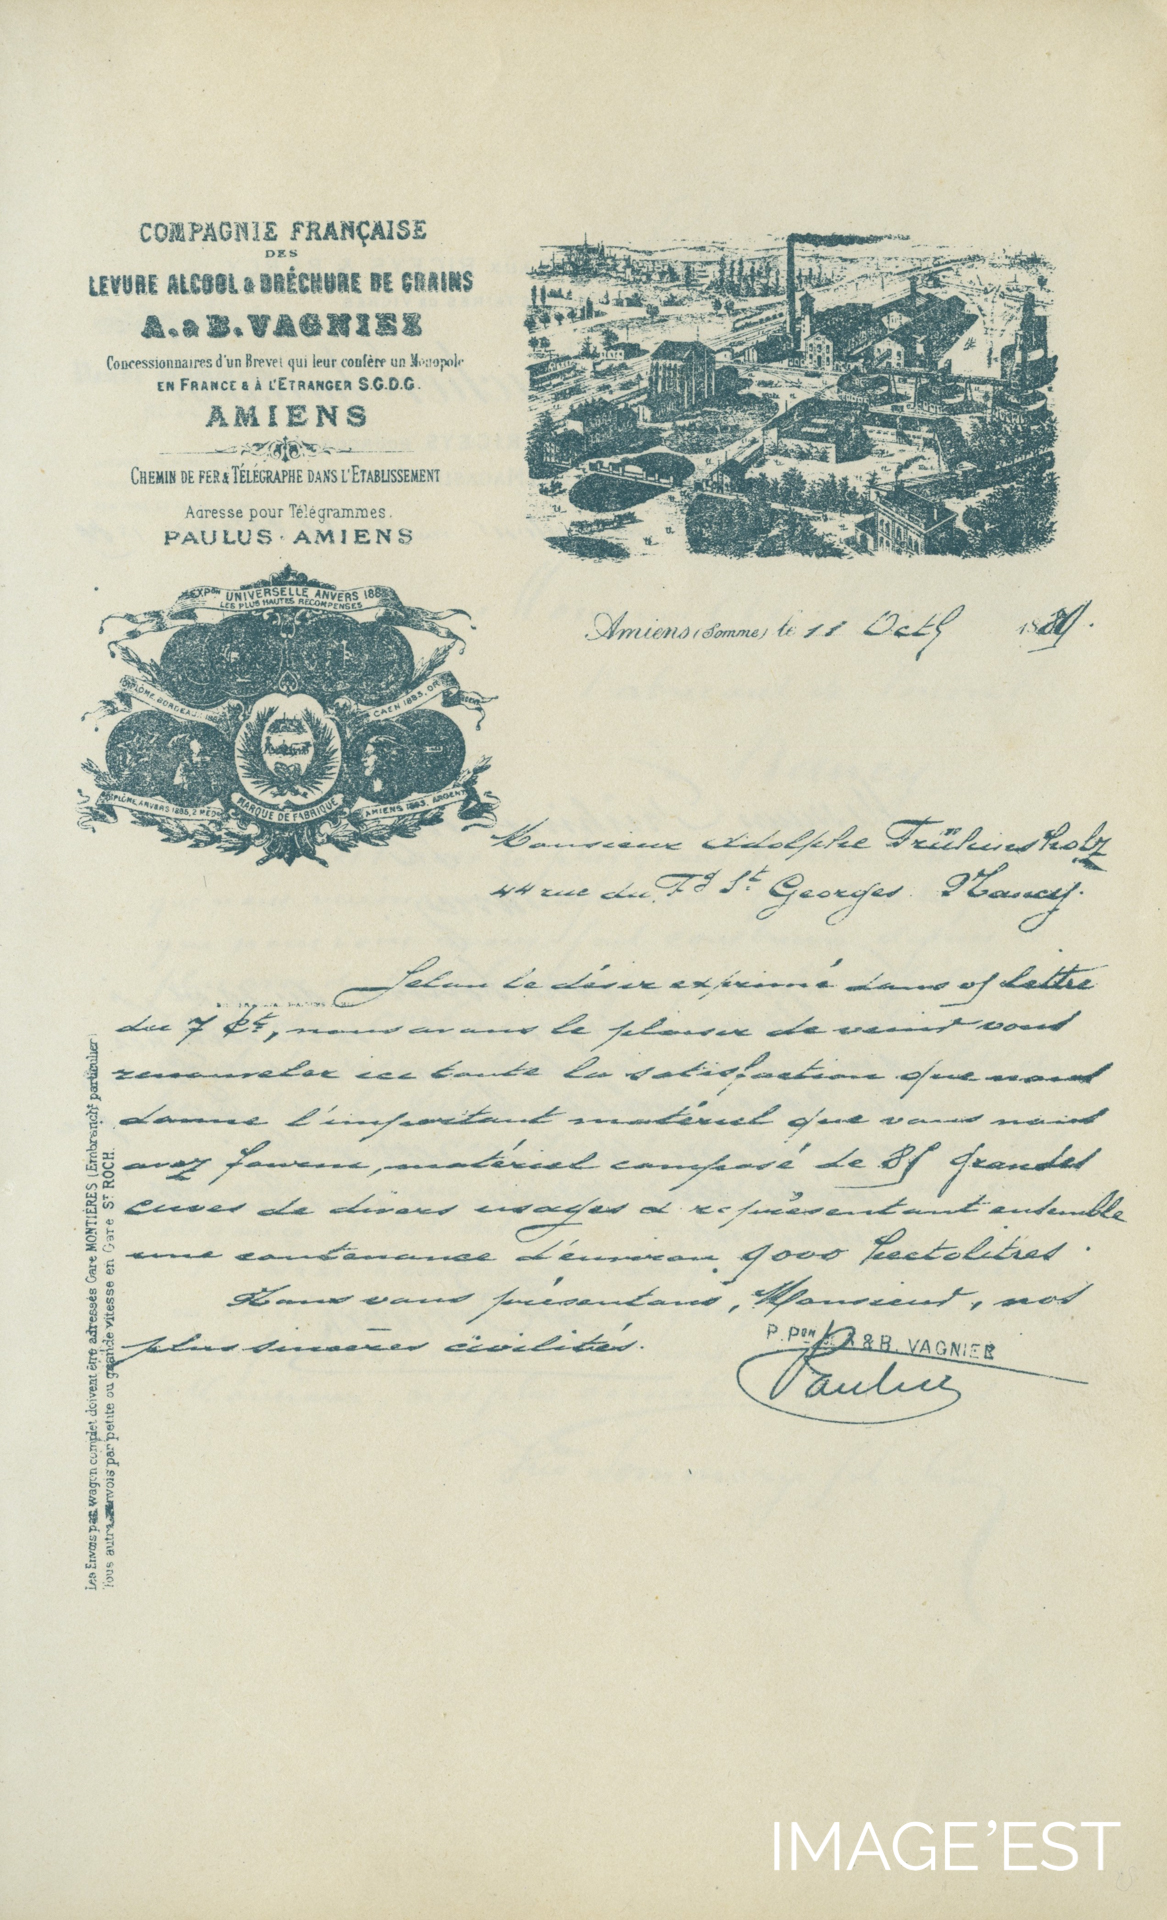 COMPAGNIE FRANÇAISE
DES
LEVURE ALCOOL & DRÊCHURE DE GRAINS
A. & B. VAGNIEZ
Concessionnaires d'un Brevet qui leur confère un Monopole
EN FRANCE & À L'ETRANGER S.G.D.G.
AMIENS
CHEMIN DE FER & TÉLÉGRAPHE DANS L'ETABLISSEMENT
Adresse pour Télégrammes.
PAULUS · AMIENS
EXPON UNIVERSELLE ANVERS 1885
LES PLUS HAUTES RÉCOMPENSES
DIPLÔME BORDEAUX
CAEN 1883, OR
DIPLÔME ANVERS 1885, 2 MED
MARQUE DE FABRIQUE
AMIENS 1883, ARGENT
Amiens (Somme) le 11 Oct
Monsieur Adolphe Frühinsholz
44 rue du Fg St Georges. Nancy.
Selon le désir exprimé dans v/ lettre
du 7 Ct, nous avons le plaisir de venir vous
renouveler ici toute la satisfaction que nous
donne l'important matériel que vous nous
avez fourni, matériel composé de grandes
cuves de divers usages & représentant ensemble
une contenance d'environ 9000 hectolitres.
Nous vous présentons, Monsieur, nos
plus sincères civilités.
P. PON DE A & B. VAGNIEZ
Paulus
Les Envois par wagon complet doivent être adressés Gare MONTIÈRES (Embrancht particulier)
Tous autres envois par petite ou grande vitesse en Gare ST ROCH.
IMAGE'EST